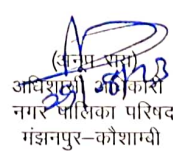 (अनूप राव)
अधिशासी अधिकारी
नगर पालिका परिषद
मंझनपुर–कौशाम्बी